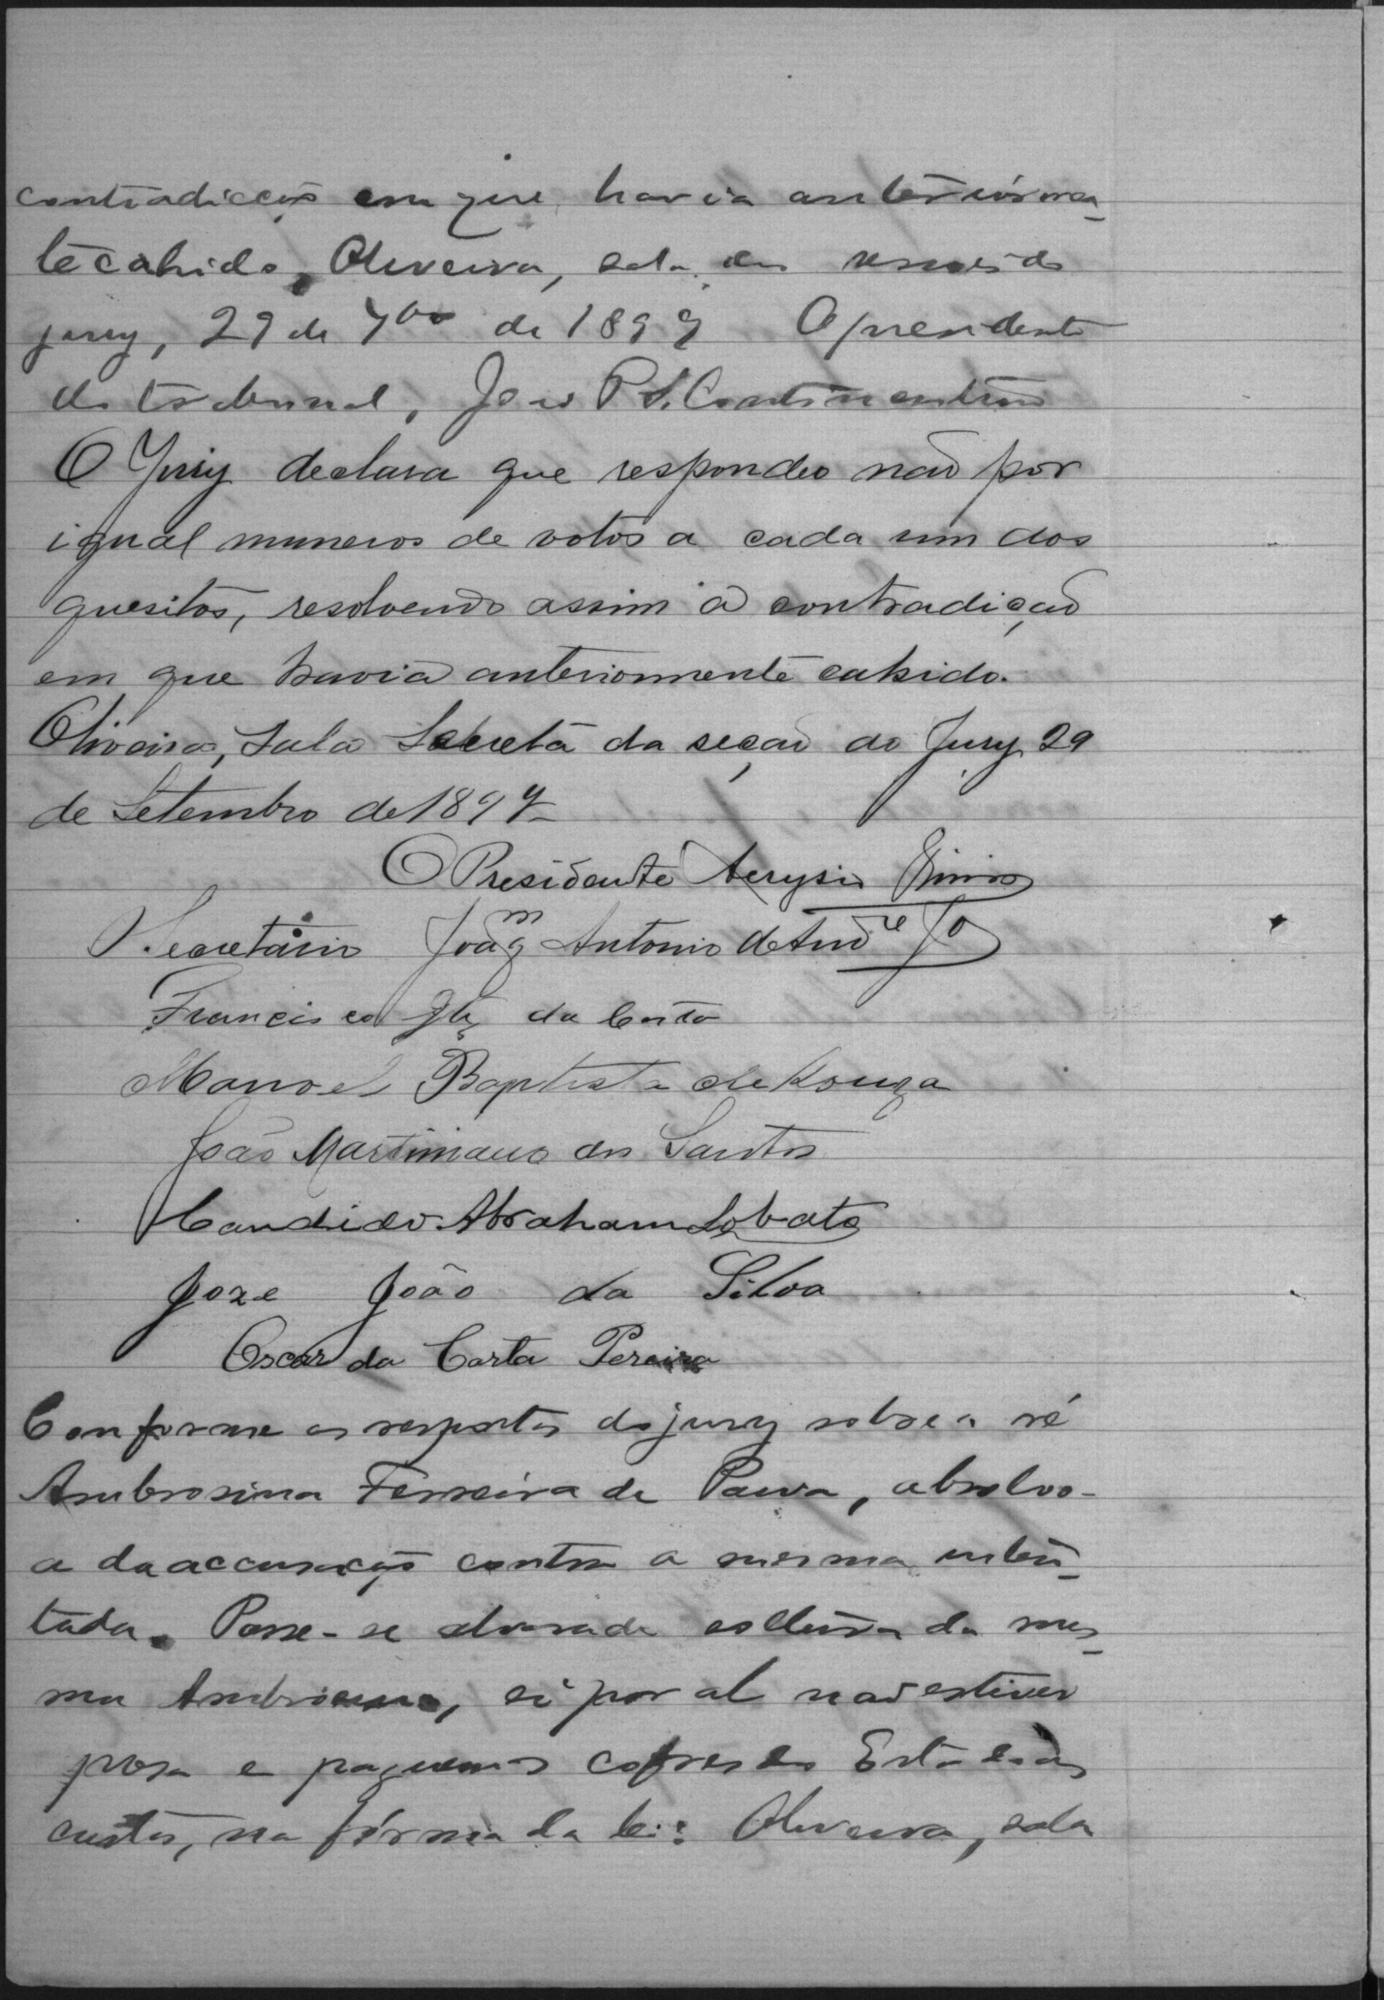 contradicção em que havia anteriormen_
te cahido, Oliveira, sala das sessões do
jury, 29 de 7bro de 1897 O presidente
do tribunal, João P. S. Continentino
O Jury declara que respondeo não por
igual muneros de votos a cada um dos
quesitos, resolvendo assim a contradição
em que havia anteriormente cahido.
Oliveira, Sala Secreta da seção do Jury 29
de Setembro de 1897
O Presidente
O Secretario Joaqm Antonio de Andre Jo
Francisco da Costa
Manoel Baptista de Souza
João Martiniano dos Santos
Candido Abraham Lobato
Joze João da Silva
Oscar da Costa Pereira
Conforme as respostas do jury sobre a ré
Ambrosina Ferreira de Paiva, absolvo-
a da accusação contra a mesma inten_
tada. Passe-se alvará de soltura da mes_
ma Ambrosina, si por al não estiver
presa e paguem os cofres do Estado as
custas, na fórma da lei. Oliveira, sala